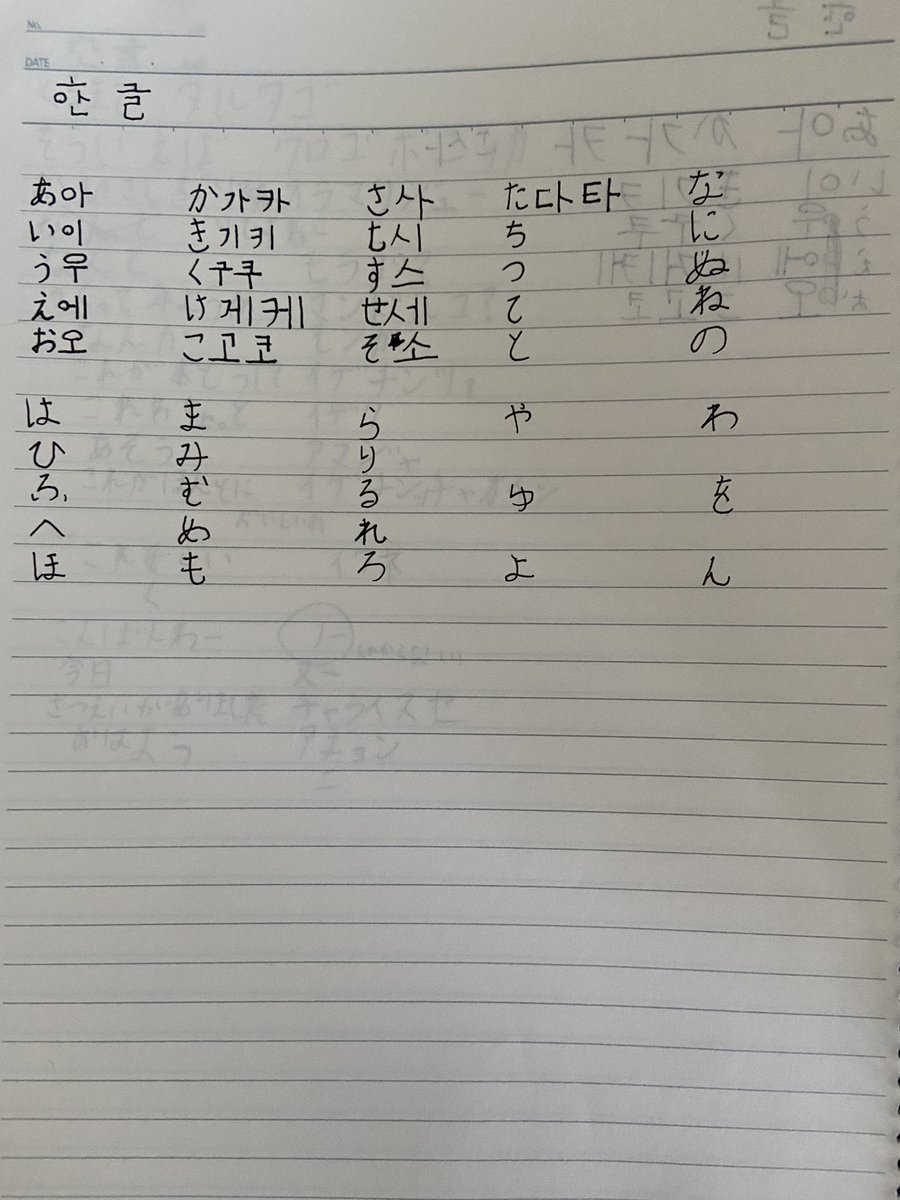 No.
DATE
한글
あ아 か가카 さ사 た다타 な
い이 き기키 し시 ち に
う우 く구쿠 す스 つ ぬ
え에 け게케 せ세 て ね
お오 こ고코 そ소 と の
は ま ら や わ
ひ み り
ふ む る ゆ を
へ め れ
ほ も ろ よ ん